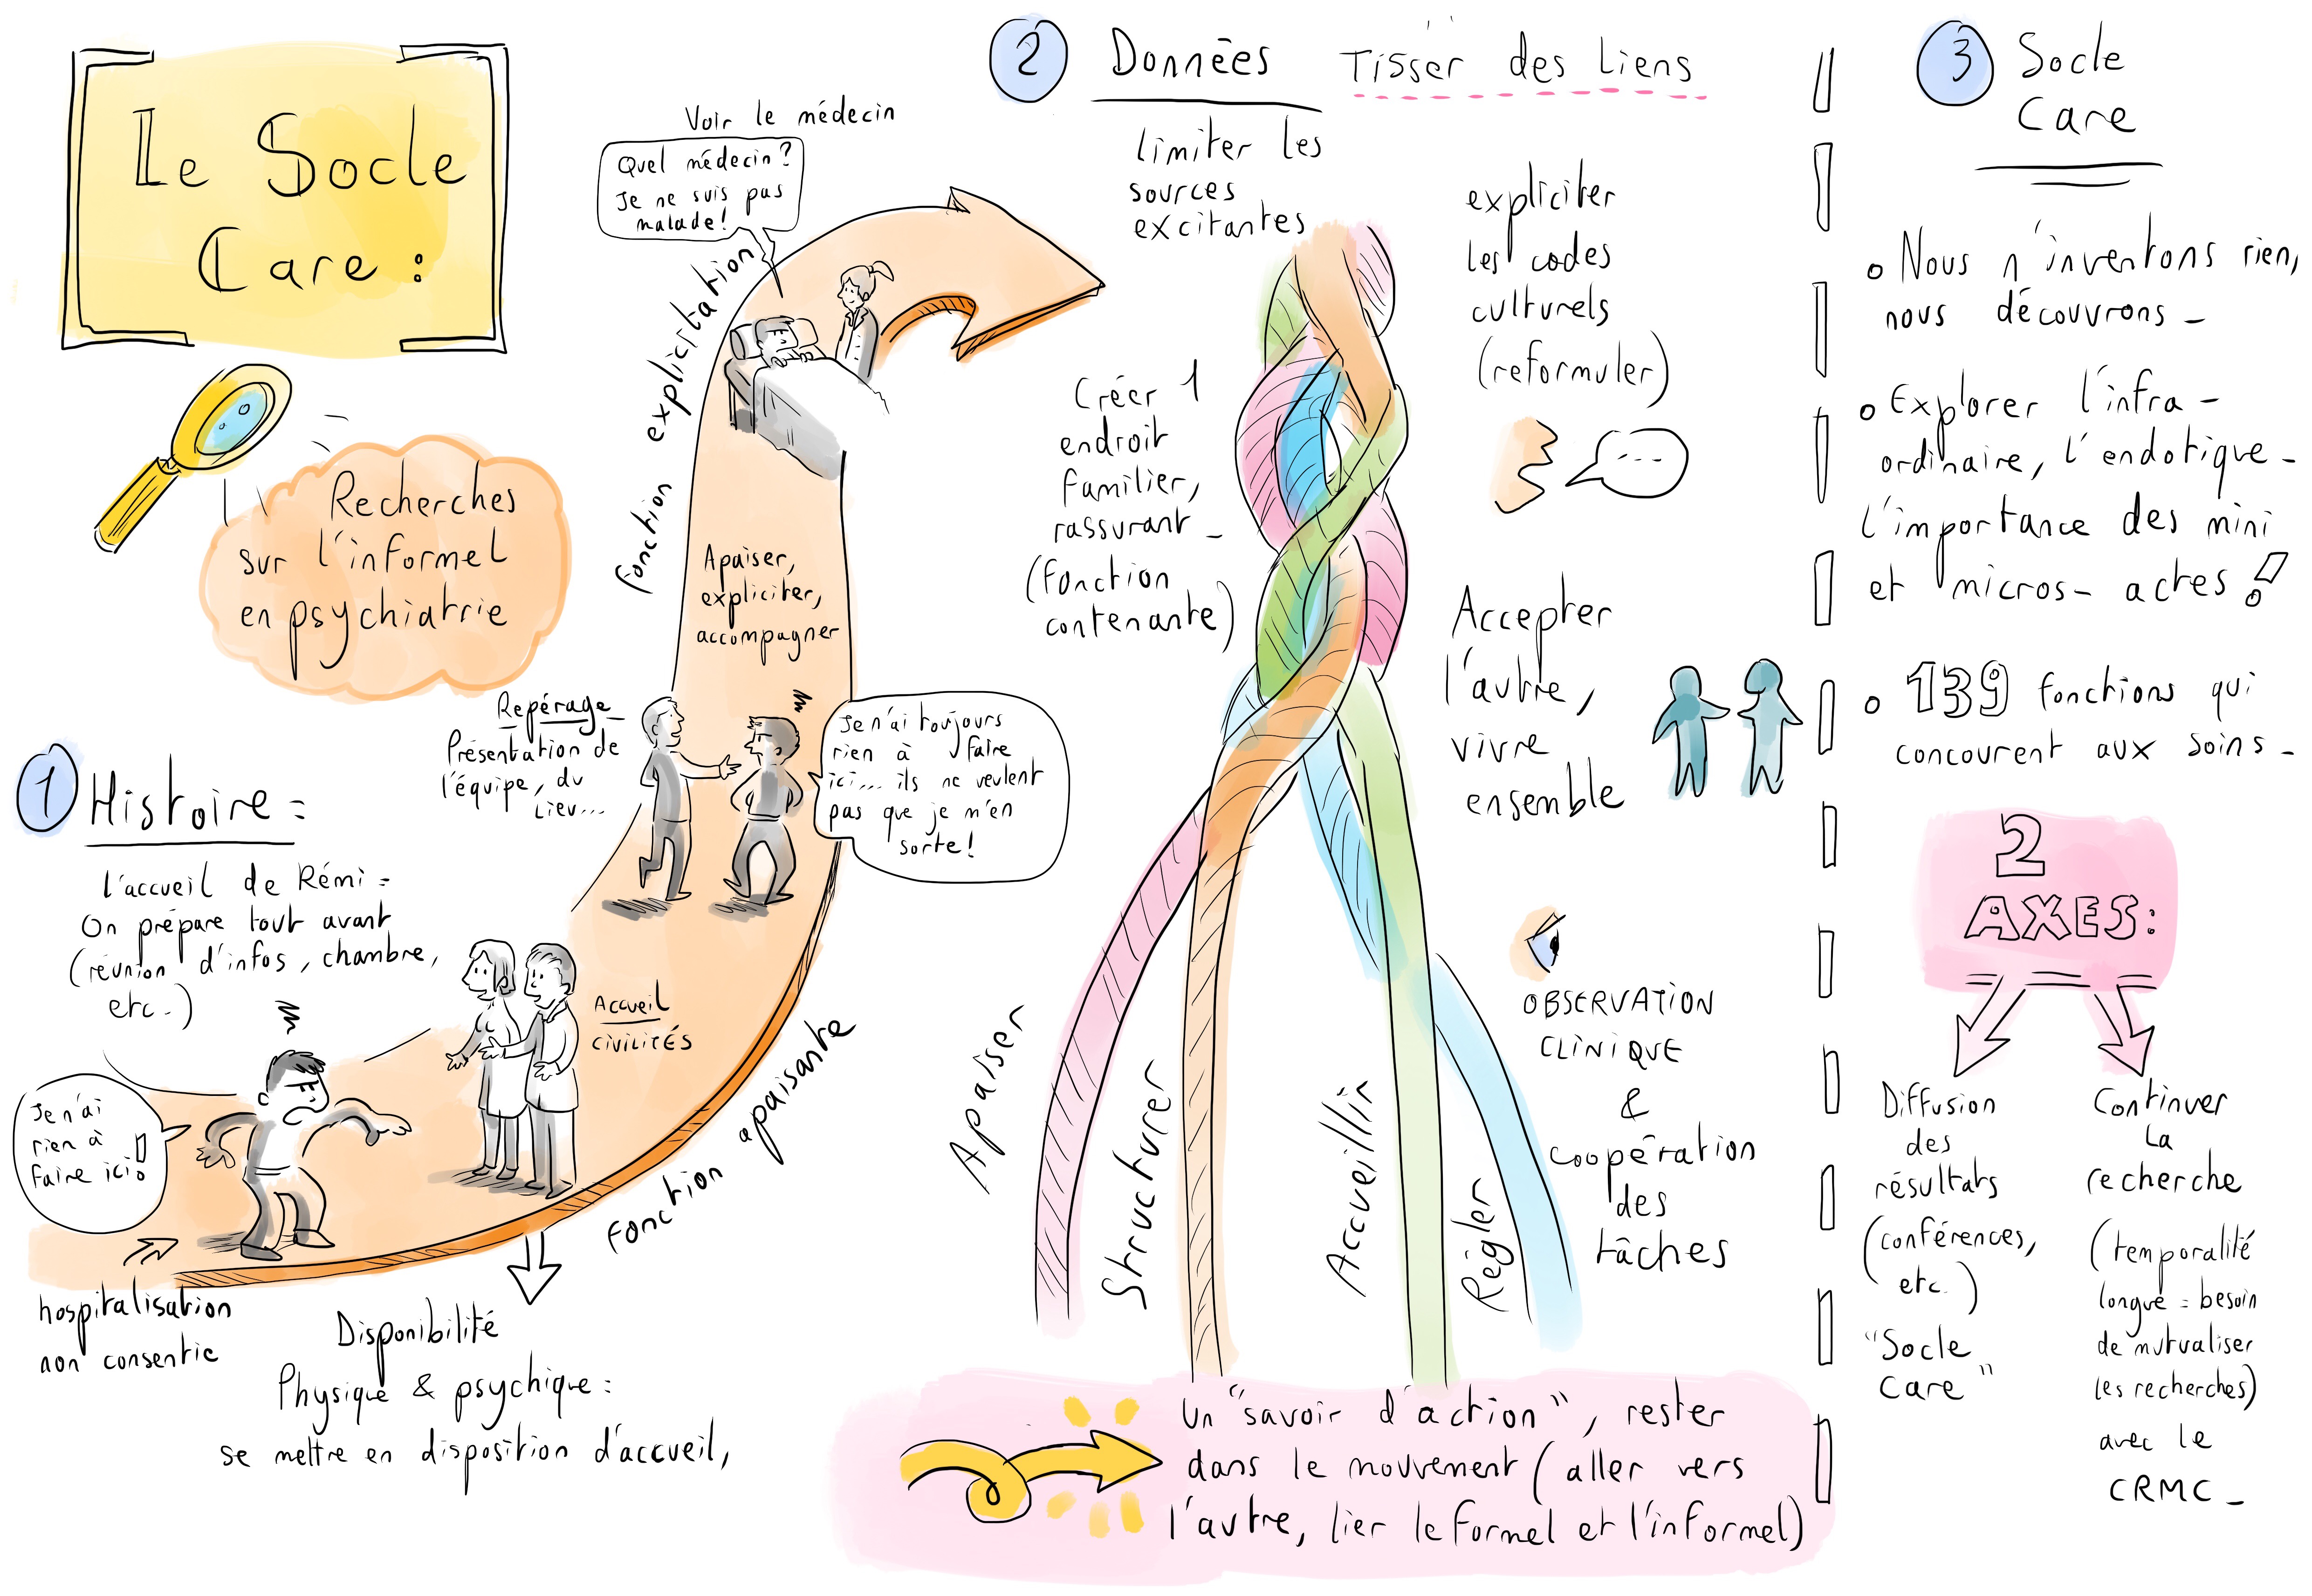 Le Socle
Care :
Recherches
sur l'informel
en psychiatrie
1 Histoire =
l'accueil de Rémi =
On prépare tout avant
(réunion d'infos, chambre,
etc.)
Je n'ai
rien à
faire ici !
hospitalisation
non consentie
Accueil
civilités
Disponibilité
Physique & psychique :
se mettre en disposition d'accueil,
fonction apaisante
Repérage_
Présentation de
l'équipe, du
lieu...
Je n'ai toujours
rien à faire
ici... ils ne veulent
pas que je m'en
sorte !
Apaiser,
expliciter,
accompagner
fonction explicitation
Voir le médecin
Quel médecin ?
Je ne suis pas
malade !
2 Données
Tisser des liens
limiter les
sources
excitantes
Créer 1
endroit
familier,
rassurant_
(fonction
contenante)
expliciter
les codes
culturels
(reformuler)
---
Accepter
l'autre,
vivre
ensemble
OBSERVATION
CLINIQUE
&
coopération
des
tâches
Apaiser
Structurer
Accueillir
Régler
Un "savoir d'action", rester
dans le mouvement (aller vers
l'autre, lier le formel et l'informel)
3 Socle
Care
o Nous n'inventons rien,
nous découvrons_
o Explorer l'infra-
ordinaire, l'endotique_
l'importance des mini
et micros-actes !
o 139 fonctions qui
concourent aux soins_
2
AXES :
Diffusion
des
résultats
(conférences,
etc.)
"Socle
Care"
Continuer
la
recherche
(temporalité
longue = besoin
de mutualiser
les recherches)
avec le
CRMC_